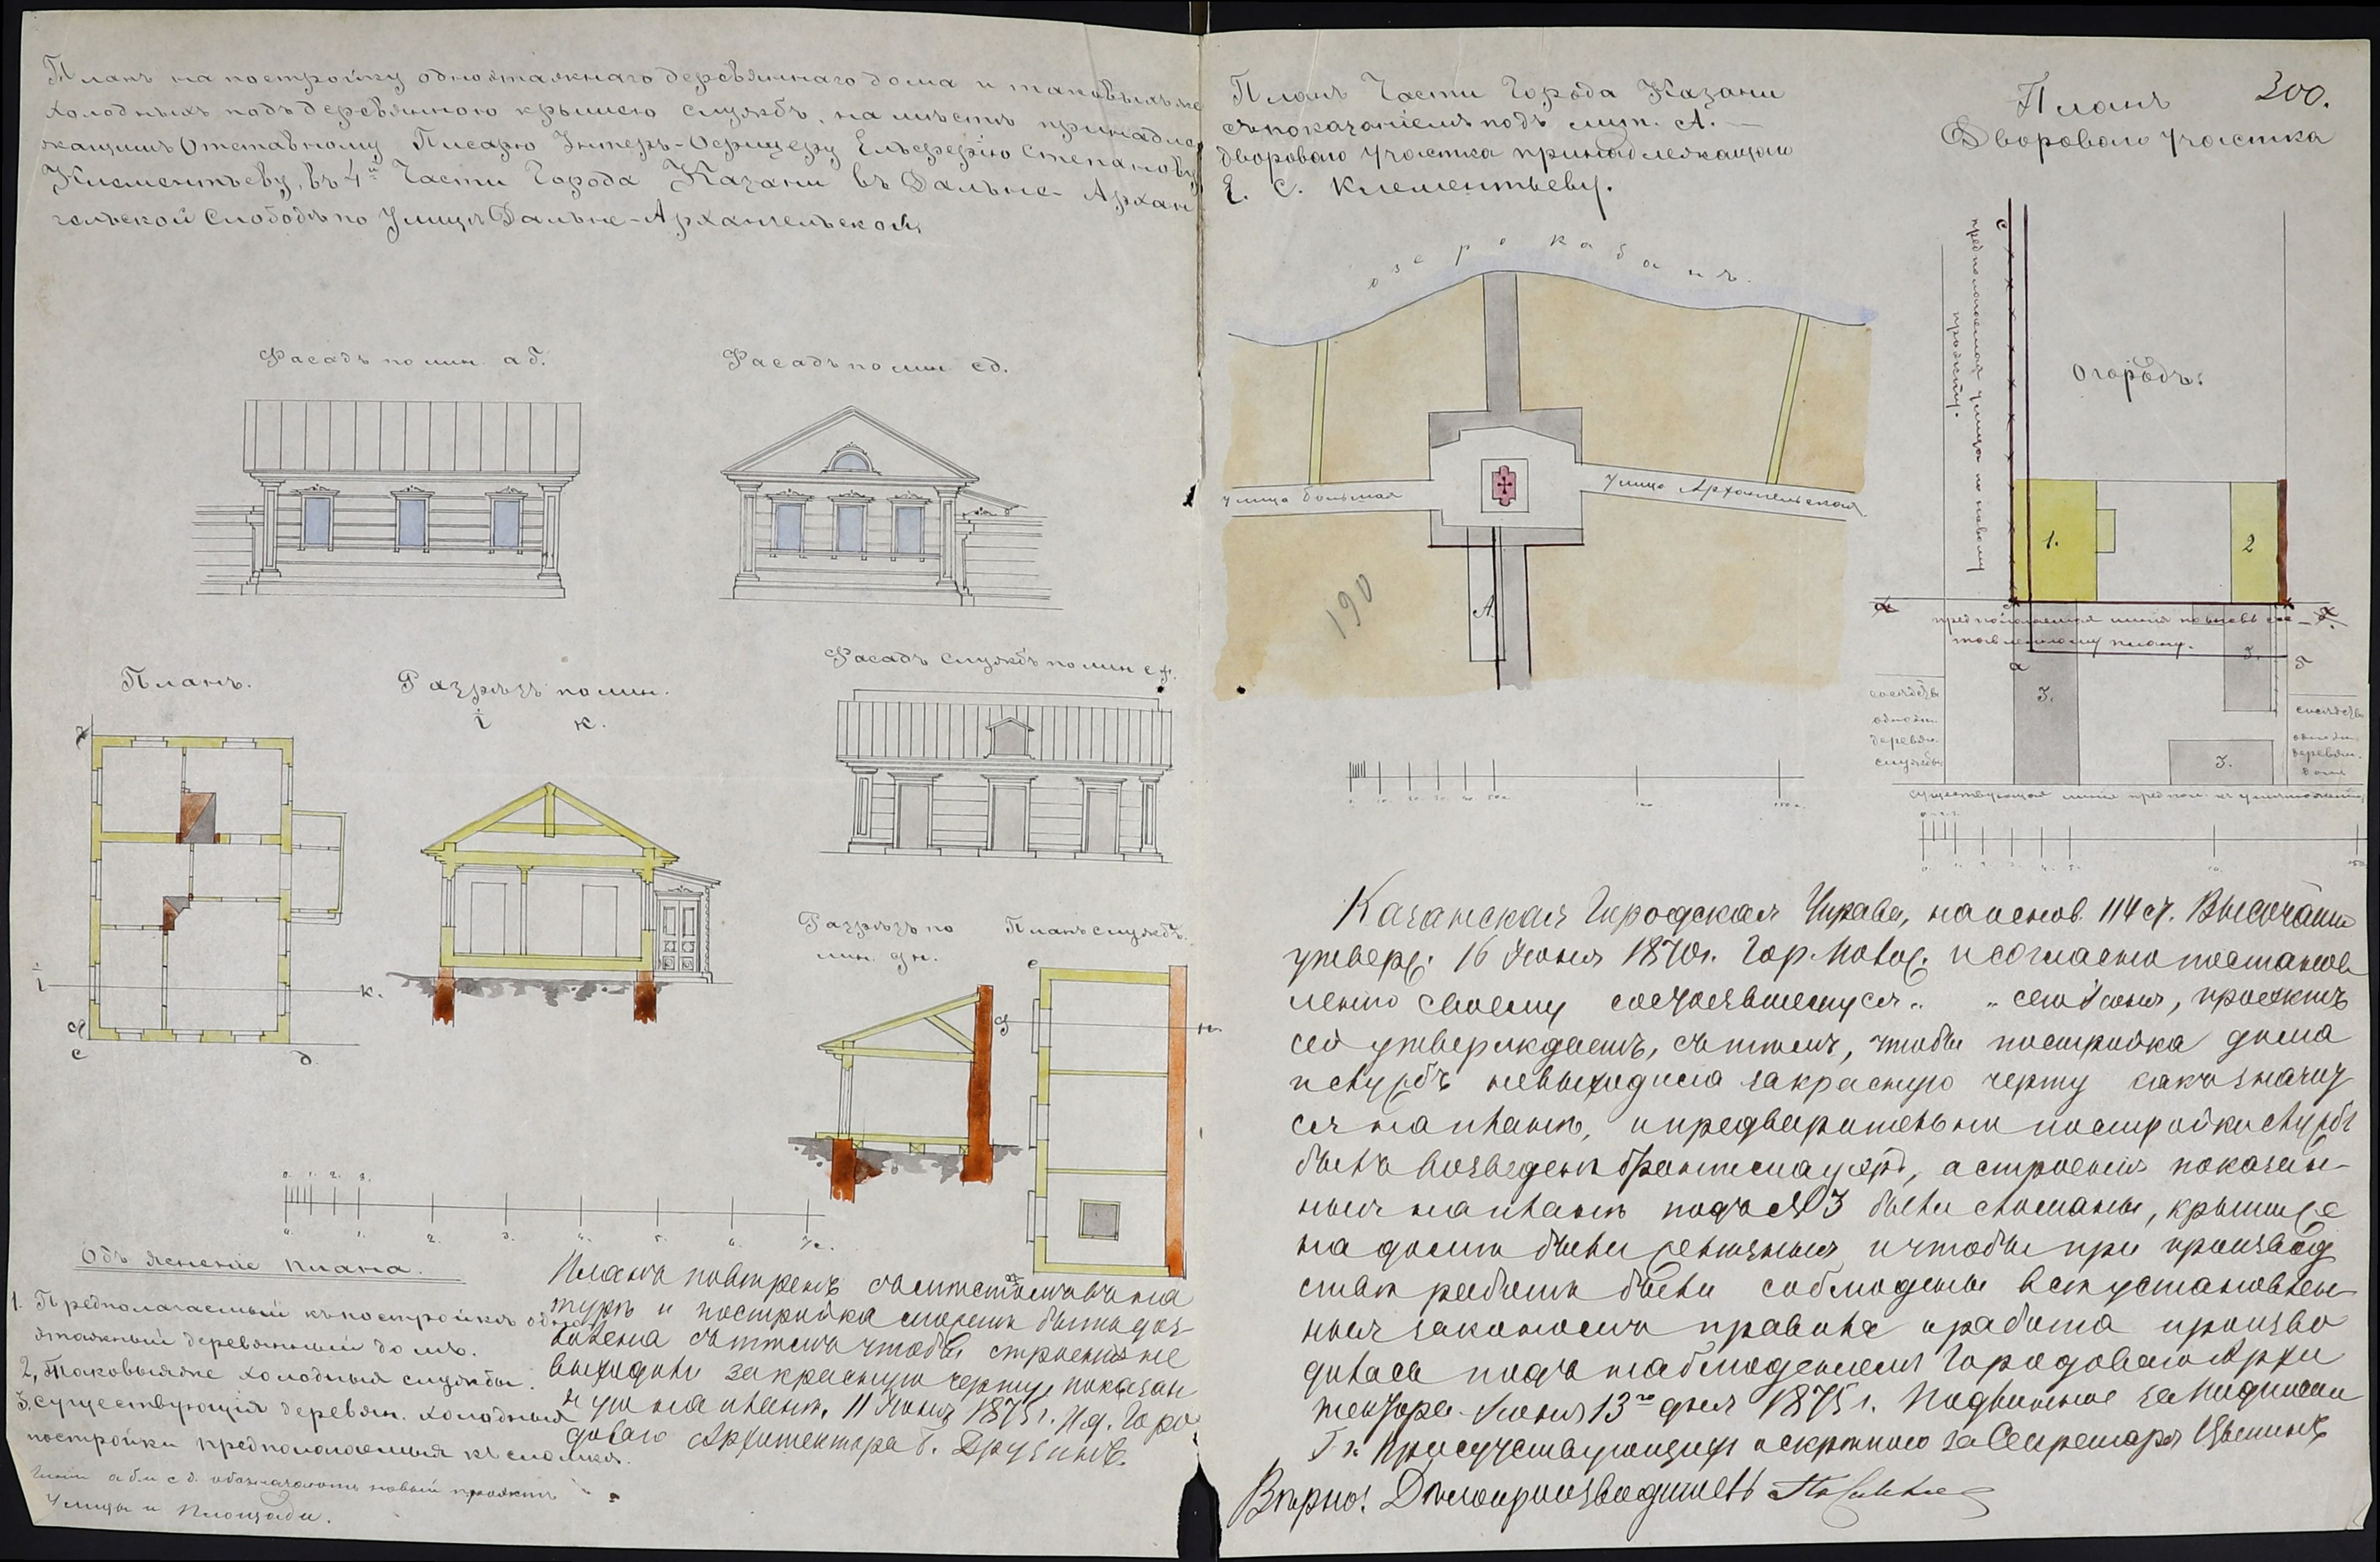 Планъ на постройку одноэтажнаго деревяннаго дома и таковыхъ же
холодныхъ подъ деревянною крышею службъ, на мѣстѣ принадле
жащимъ Отставному Писарю Унтеръ-Офицеру Ельферію Степанову
Клементьеву, въ 4й Части Города Казани въ Дальне-Архан
гельской Слободѣ по Улицѣ Дальне-Архангельской
Фасадъ по лин. аб.
Фасадъ по лин. сд.
Фасадъ службъ по лин еф.
Планъ.
Разрѣзъ по лин.
і к.
і
к.
с
д
Разрѣзъ по
лин. g н.
Планъ службъ.
е
g
н.
0. 1. 2. 3.
0. 1. 2. 3. 4. 5. 6. 7с.
Объясненіе плана.
1. Предполагаемый къ постройкѣ одно
этажный деревянный домъ.
2, Таковыяже холодныя службы.
3. существующія деревян. холодныя
постройки предполагаемыя къ сломкѣ.
Линіи аб и сд. обозначаютъ новый проэктъ
Улицы и Площади.
Планъ повѣренъ съ мѣстомъ въ на
турѣ и постройка можетъ быть доз-
волена съ тѣмъ чтобы строенія не
выходили за красную черту, показан
ную на планѣ, 11 Іюня 1875 г. И.д. Горо
доваго Архитектора Б. Друзинъ.
Планъ Части Города Казани
съ показаніемъ подъ лит. А.
двороваго участка принадлежащаго
Е. С. Клементьеву.
озеро кабанъ.
улица большая
Улица Архангельская
А
190
Планъ
300.
Двороваго участка
с
предполагаемая улица по новому
проэкту.
Огородъ.
1.
2
предполагаемая линія по вновь сос-
тавленному плану.
а
б
3.
3.
3.
сосѣдств.
одноэт.
деревян.
службы
сосѣдств.
одноэт.
деревян.
домъ
существующая линія предпол. къ уничтоженію
Казанская Городская Управа, на основ. 114 ст. Высочайше
утвержд. 16 Іюня 1870 г. Гор. Полож. и согласно постанов
ленію своему состоявшемуся „ „ сего Іюня, проэктъ
сей утверждаетъ, съ тѣмъ, чтобы постройка дома
и службъ невыходила за красную черту какъ значит
ся на планѣ, и предварительно постройки службъ
былъ возведенъ брантмауеръ, а строенія показан-
ныя на планѣ подъ № 3 были сломаны, крыши же
на домѣ были желѣзныя и чтобы при производ
ствѣ работъ были соблюдены всѣ установлен
ныя закономъ правила и работа произво
дилась подъ наблюденіемъ Городоваго Архи
тектора. Іюня 13го дня 1875 г. Подлинное за подписями
Гг. Присутствующихъ и скрѣпою за Секретаря
Вѣрно: Дѣлопроизводитель